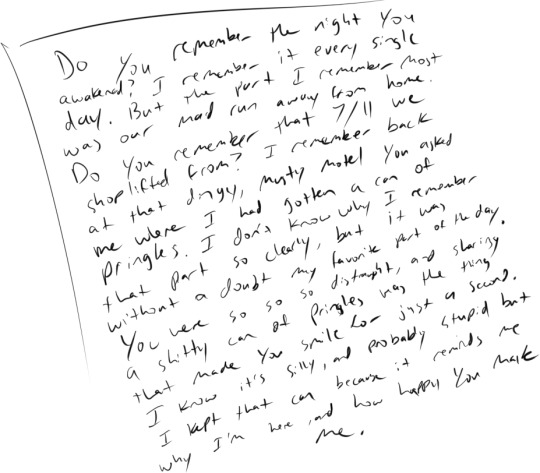 Do you remember the night you
awakened? I remember it every single
day. But the part I remember most
was our mad run away from home.
Do you remember that 7/11 we
shoplifted from? I remember back
at that dingy, musty motel you asked
me where I had gotten a can of
Pringles. I don't know why I remember
that part so clearly, but it was
without a doubt my favorite part of the day.
You were so so so distraught, and sharing
a shitty can of Pringles was the thing
that made you smile for just a second.
I know it's silly, and probably stupid but
I kept that can because it reminds me
why I'm here, and how happy you make
me.